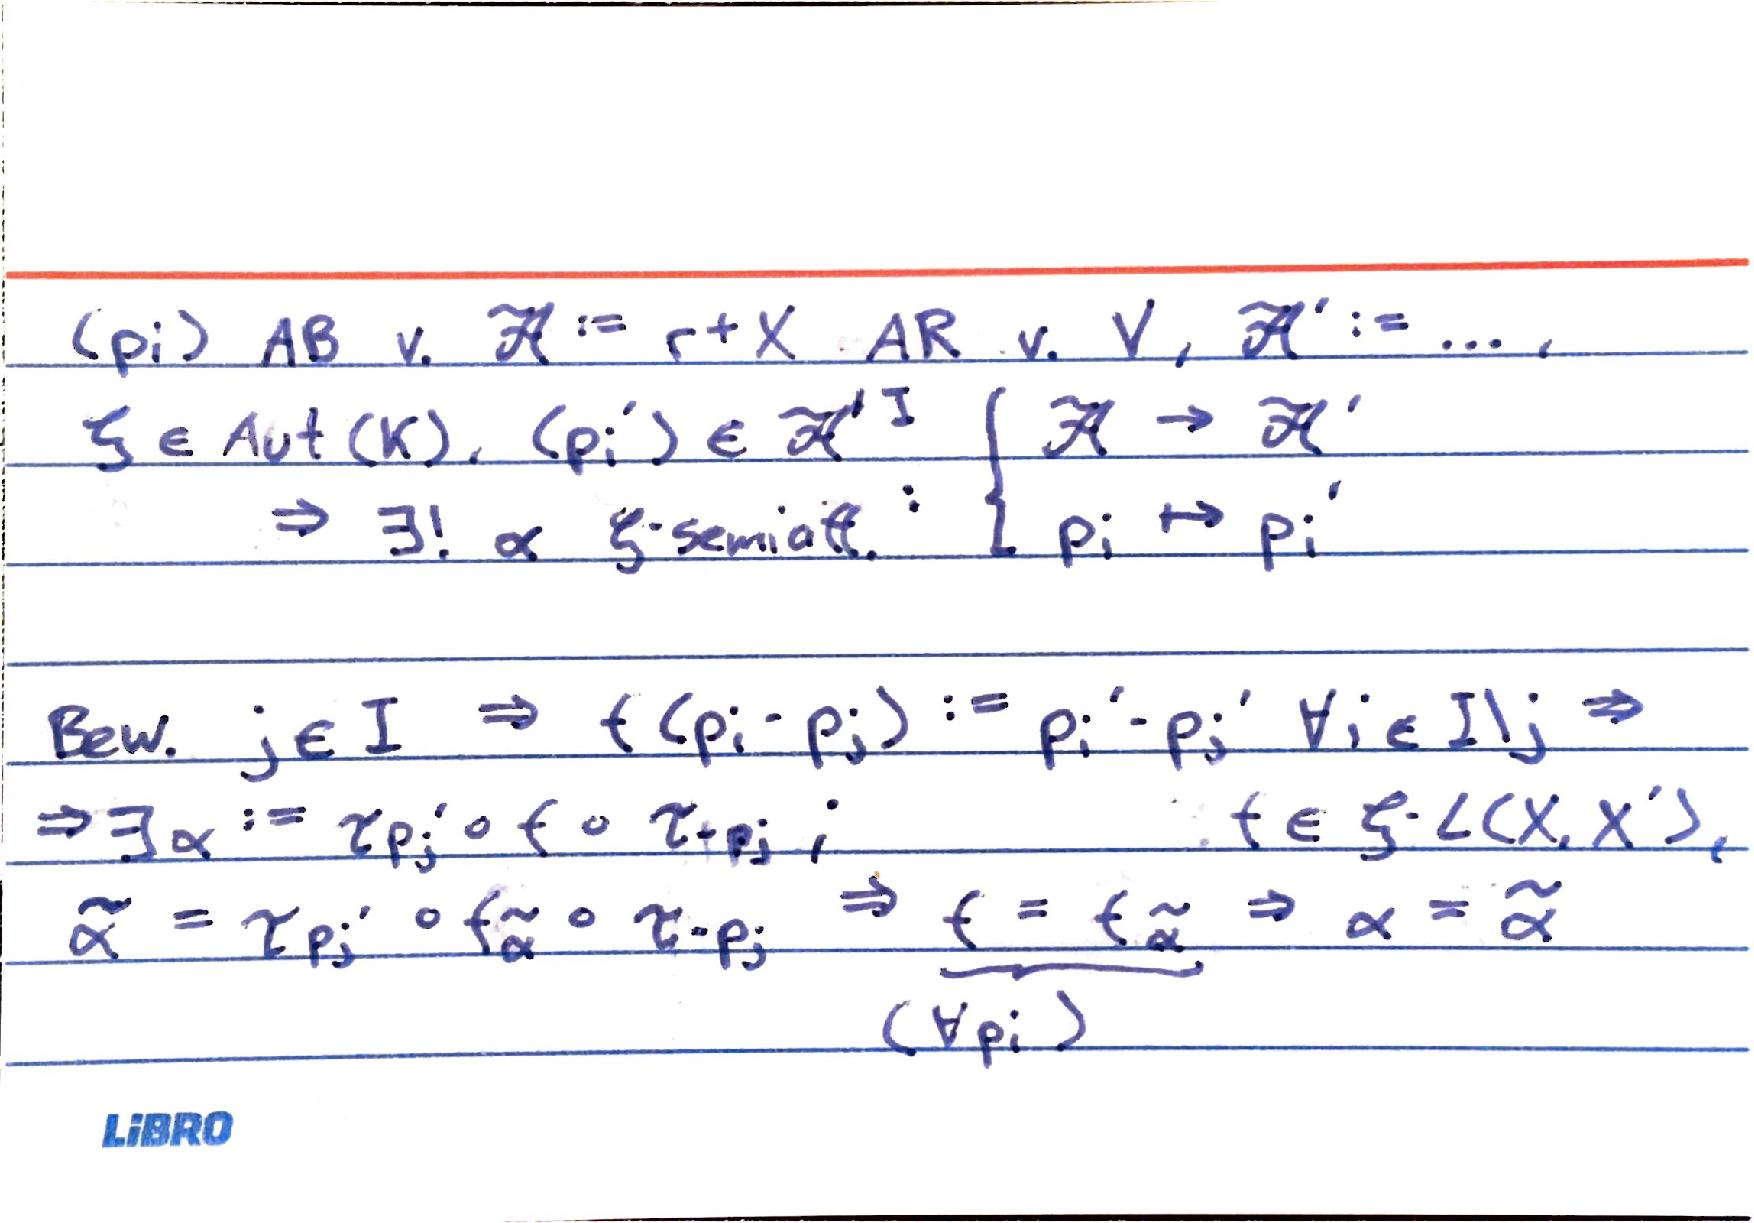 (pi) AB v. 𝓗̃ := r+X AR v. V, 𝓗̃' := ...,
ζ ∈ Aut(K), (pi') ∈ 𝓗̃'^I { 𝓗̃ → 𝓗̃'
⇒ ∃! α ζ-semiaff. : pi ↦ pi'
Bew. j ∈ I ⇒ f(pi-pj) := pi'-pj' ∀i ∈ I\j ⇒
⇒ ∃α := τpj' ∘ f ∘ τ-pj ; f ∈ ζ-L(X, X'),
α̃ = τpj' ∘ fα̃ ∘ τ-pj ⇒ f = fα̃ ⇒ α = α̃
(∀pi)
LiBRO